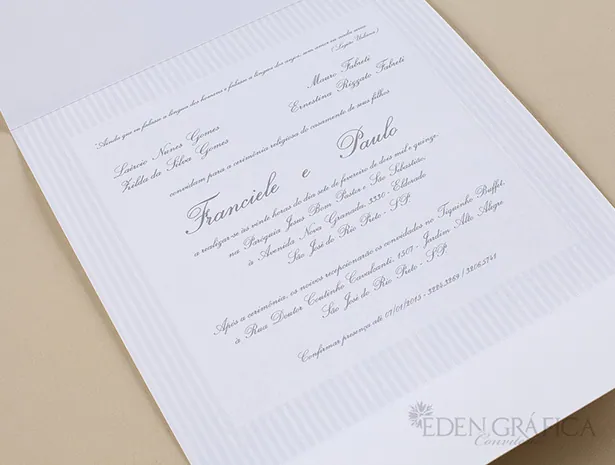 "Ainda que eu falasse a língua dos homens e falasse a língua dos anjos, sem amor eu nada seria"
(Legião Urbana)
Laércio Nunes Gomes
Zilda da Silva Gomes
Mauro Fabuti
Ernestina Rizzato Fabuti
convidam para a cerimônia religiosa do casamento de seus filhos
Franciele e Paulo
a realizar-se às vinte horas do dia sete de fevereiro de dois mil e quinze,
na Paróquia Jesus Bom Pastor e São Sebastião,
à Avenida Nova Granada, 3330 - Eldorado
São José do Rio Preto - SP
Após a cerimônia, os noivos recepcionarão os convidados no Toquinho Buffet,
à Rua Doutor Coutinho Cavalcanti, 1501 - Jardim Alto Alegre
São José do Rio Preto - SP
Confirmar presença até 07/01/2015 - 3224.3269 / 3206.5741
EDEN GRÁFICA
Convites